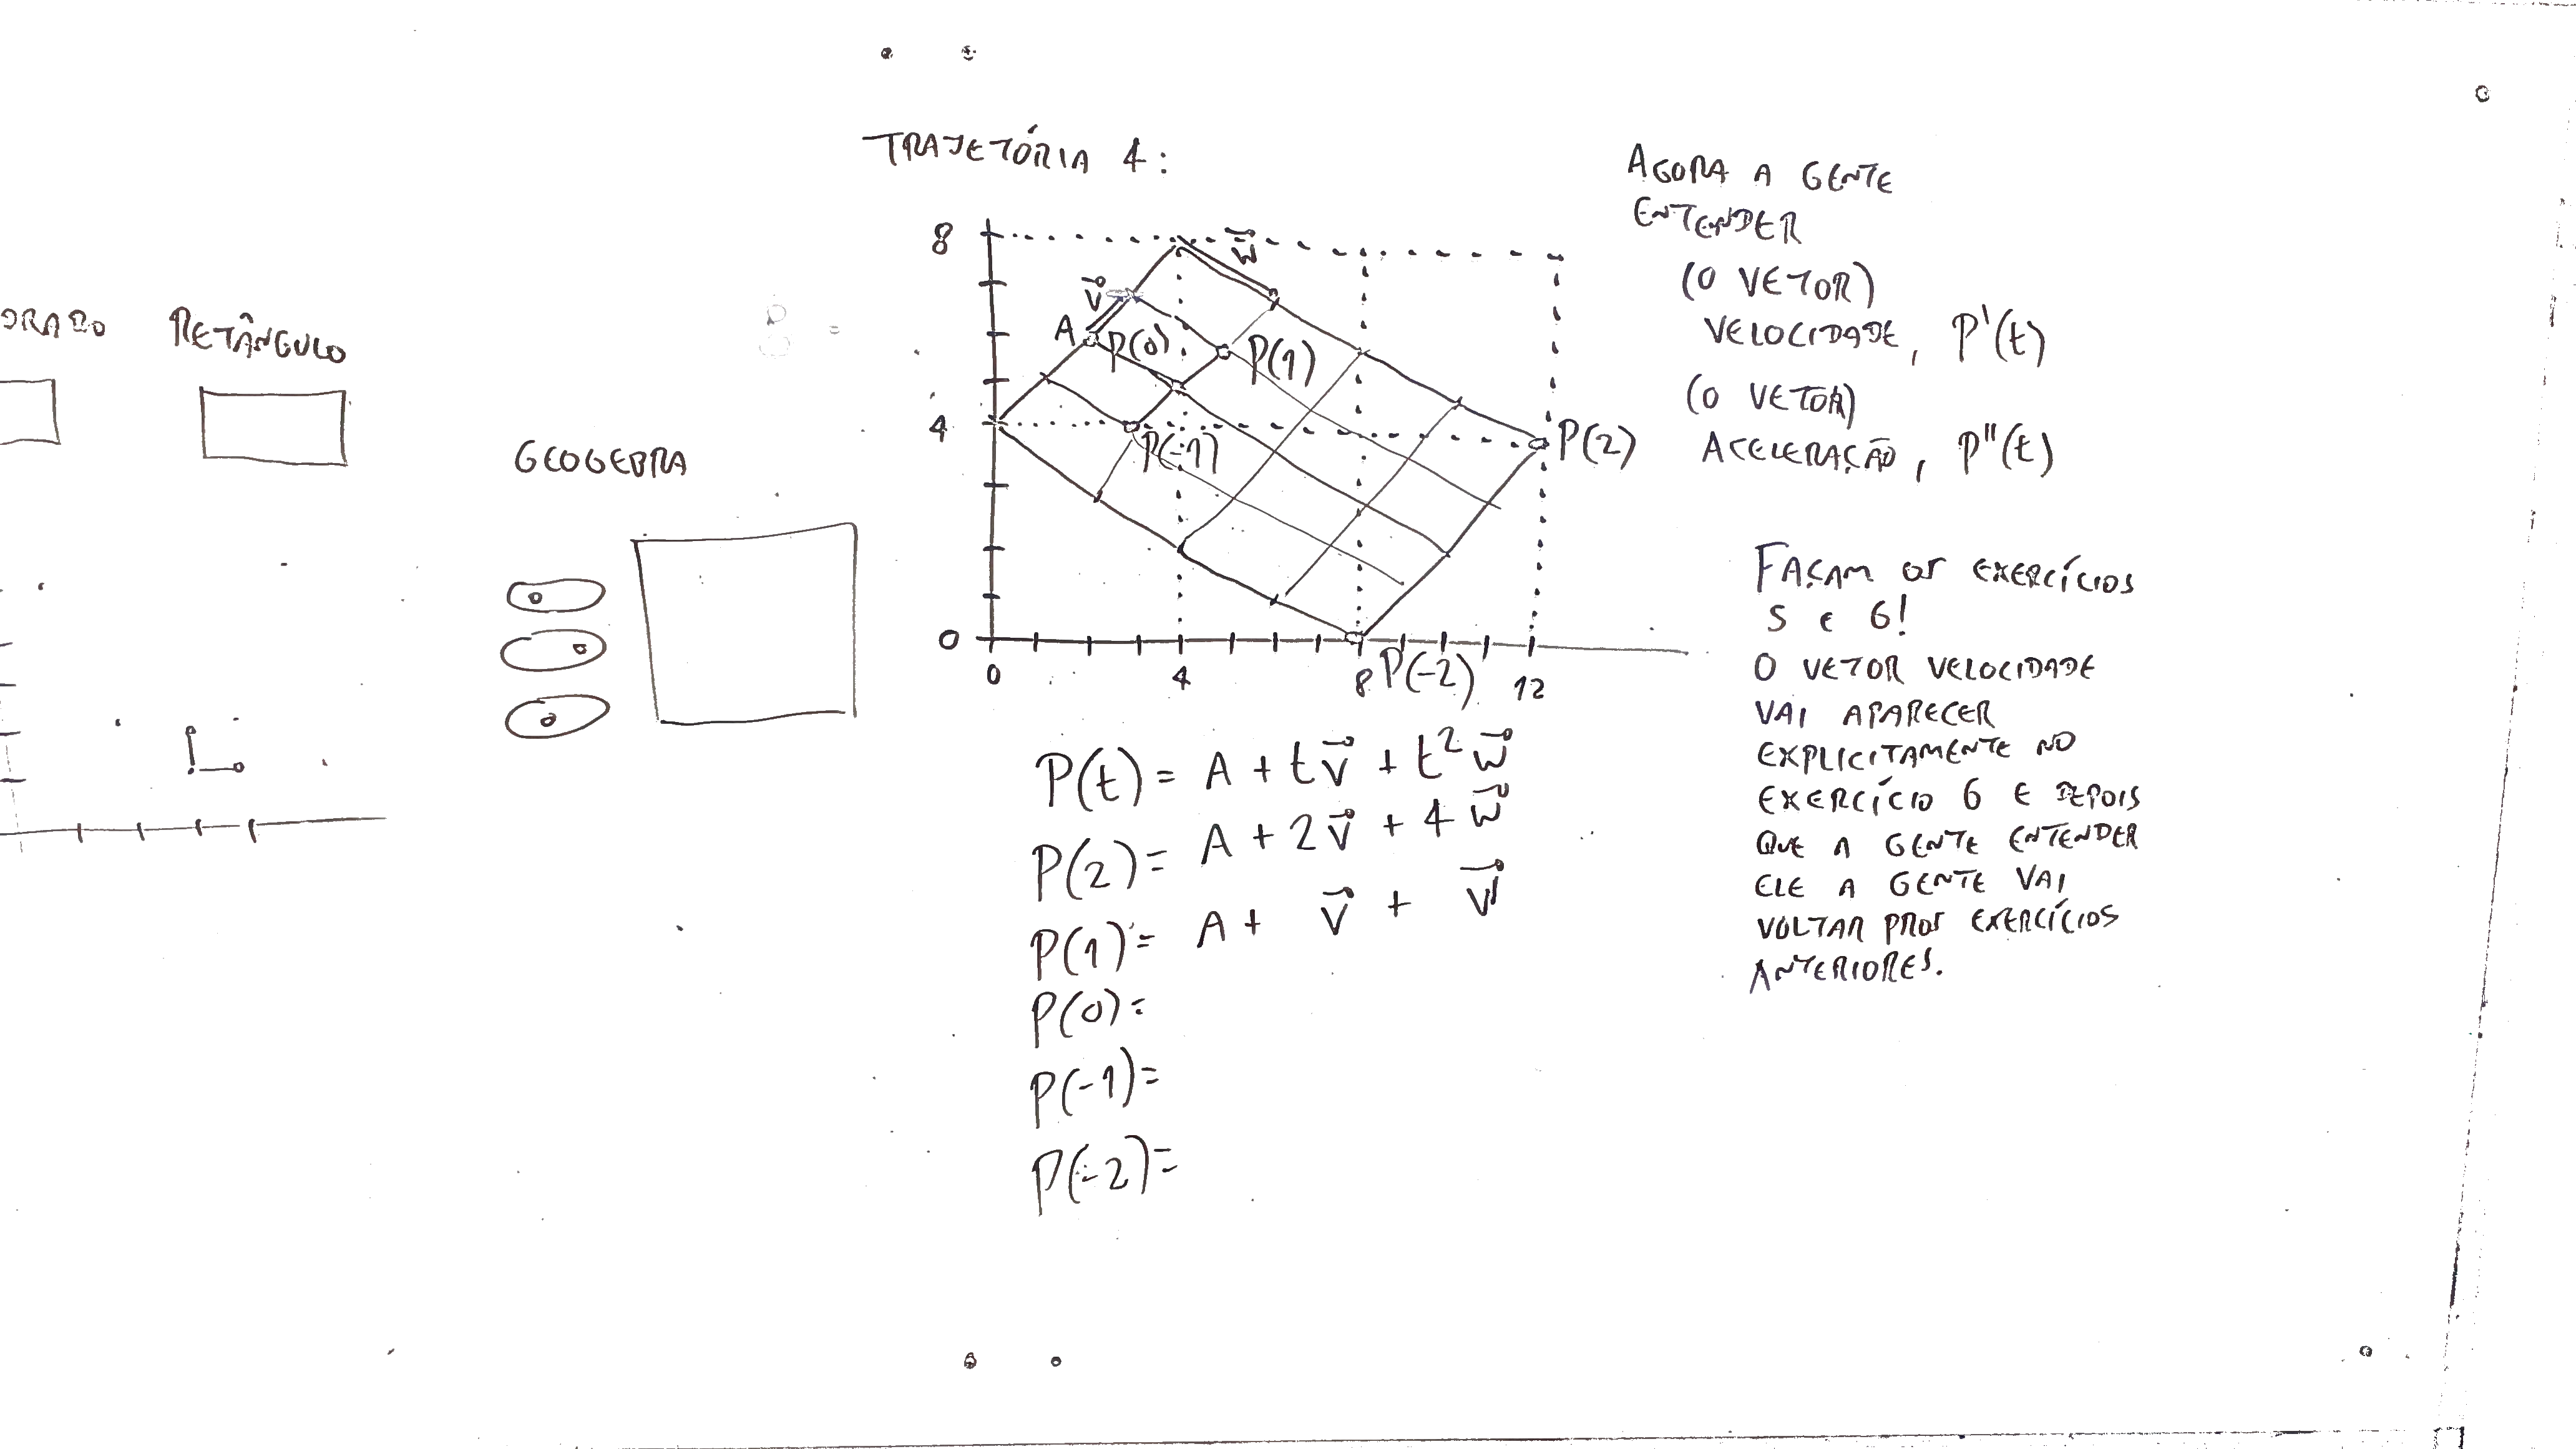 DRADO RETÂNGULO
GEOGEBRA
TRAJETÓRIA 4:
8
4
0
0 4 8 12
A
v⃗
w⃗
P(0)
P(1)
P(-1)
P(2)
P(-2)
P(t) = A + tv⃗ + t²w⃗
P(2) = A + 2v⃗ + 4w⃗
P(1) = A + v⃗ + w⃗
P(0) =
P(-1) =
P(-2) =
AGORA A GENTE
ENTENDER
(O VETOR)
VELOCIDADE, P'(t)
(O VETOR)
ACELERAÇÃO, P''(t)
FAÇAM OS EXERCÍCIOS
5 E 6!
O VETOR VELOCIDADE
VAI APARECER
EXPLICITAMENTE NO
EXERCÍCIO 6 E DEPOIS
QUE A GENTE ENTENDER
ELE A GENTE VAI
VOLTAR PROS EXERCÍCIOS
ANTERIORES.